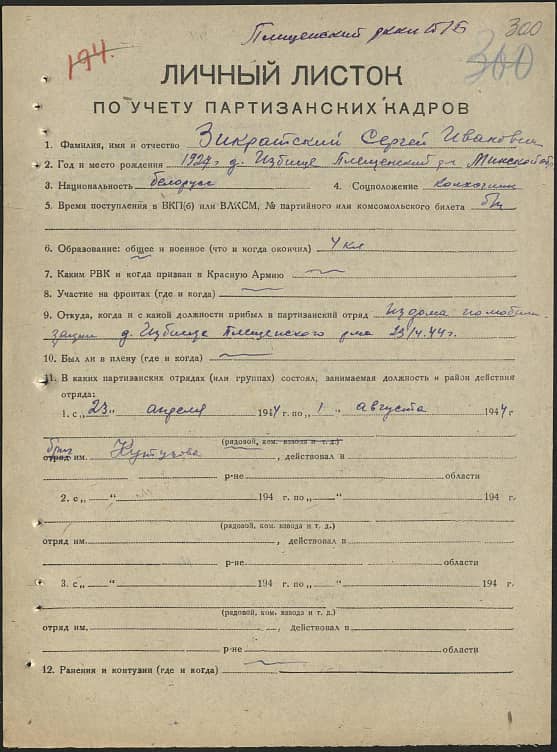 Плещенский
300
194.
300
ЛИЧНЫЙ ЛИСТОК
ПО УЧЕТУ ПАРТИЗАНСКИХ КАДРОВ
1. Фамилия, имя и отчество Зикратский Сергей Иванович
2. Год и место рождения 1927 д. Избище Плещенский р-н Минской обл.
3. Национальность белорус 4. Соцположение колхозник
5. Время поступления в ВКП(б) или ВЛКСМ, № партийного или комсомольского билета б/п
6. Образование: общее и военное (что и когда окончил) 4 кл
7. Каким РВК и когда призван в Красную Армию
8. Участие на фронтах (где и когда)
9. Откуда, когда и с какой должности прибыл в партизанский отряд из дома по мобили-
зации д. Избище Плещенского р-на 23/4.44г.
10. Был ли в плену (где и когда)
11. В каких партизанских отрядах (или группах) состоял, занимаемая должность и район действия
отряда:
1. с „23„ апреля 1944 г. по „1„ августа 1944 г.
(рядовой, ком. взвода и т. д.)
бриг
отряд им. Кутузова, действовал в
р-не области
2. с „ “ 194 г. по „ “ 194 г.
(рядовой, ком. взвода и т. д.)
отряд им. , действовал в
р-не области
3. с „ “ 194 г. по „ “ 194 г.
(рядовой, ком. взвода и т. д.)
отряд им. , действовал в
р-не области
12. Ранения и контузии (где и когда)